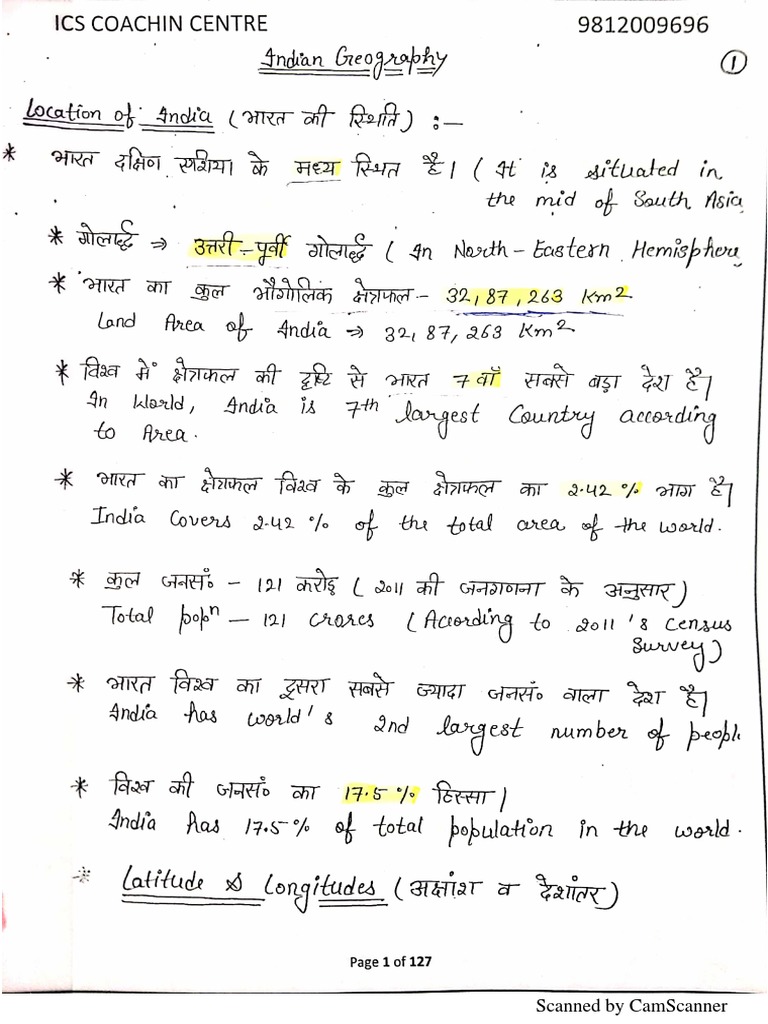 ICS COACHIN CENTRE 9812009696
Indian Geography
1
Location of India (भारत की स्थिति) :—
* भारत दक्षिण एशिया के मध्य स्थित है। (It is situated in
the mid of South Asia
* गोलार्द्ध ⇒ उत्तरी-पूर्वी गोलार्द्ध (In North-Eastern Hemisphere
* भारत का कुल भौगोलिक क्षेत्रफल - 32,87,263 Km²
Land Area of India ⇒ 32,87,263 Km²
* विश्व में क्षेत्रफल की दृष्टि से भारत 7 वाँ सबसे बड़ा देश है।
In World, India is 7th largest Country according
to Area.
* भारत का क्षेत्रफल विश्व के कुल क्षेत्रफल का 2.42 % भाग है।
India Covers 2.42 % of the total area of the world.
* कुल जनसं॰ - 121 करोड़ (2011 की जनगणना के अनुसार)
Total popⁿ — 121 crores (According to 2011's Census
Survey)
* भारत विश्व का दूसरा सबसे ज्यादा जनसं॰ वाला देश है।
India has world's 2nd largest number of peopl
* विश्व की जनसं॰ का 17.5 % हिस्सा।
India has 17.5 % of total population in the world.
* Latitude & Longitudes (अक्षांश व देशांतर)
Page 1 of 127
Scanned by CamScanner